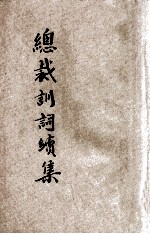 總裁訓詞續集